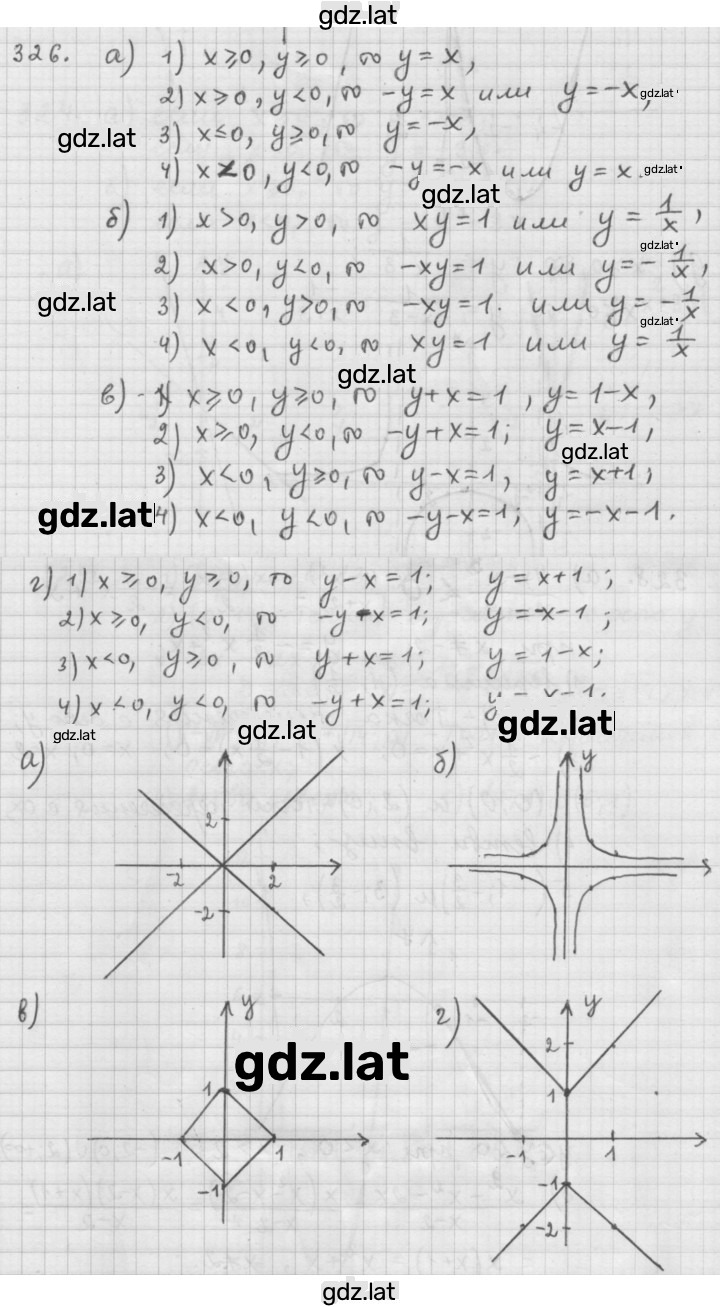 gdz.lat
326. а) 1) x⩾0, y⩾0, то y = x,
2) x⩾0, y<0, то -y=x или y=-x, gdz.lat
gdz.lat 3) x≤0, y⩾0, то y=-x,
4) x<0, y<0, то -y=-x или y=x. gdz.lat
gdz.lat
б) 1) x>0, y>0, то xy=1 или y = 1/x,
gdz.lat
2) x>0, y<0, то -xy=1 или y=-1/x,
gdz.lat 3) x<0, y>0, то -xy=1. или y=-1/x
gdz.lat
4) x<0, y<0, то xy=1 или y=1/x
gdz.lat
в) 1) x⩾0, y⩾0, то y+x=1, y=1-x,
2) x⩾0, y<0, то -y+x=1; y=x-1,
gdz.lat
3) x<0, y⩾0, то y-x=1, y=x+1;
gdz.lat 4) x<0, y<0, то -y-x=1; y=-x-1.
г) 1) x⩾0, y⩾0, то y-x=1; y=x+1;
2) x⩾0, y<0, то -y-x=1; y=-x-1;
3) x<0, y⩾0, то y+x=1; y=1-x;
4) x<0, y<0, то -y+x=1; y=x-1.
gdz.lat
gdz.lat gdz.lat
а) б) y
2
-2 2
-2
в) y г) y
gdz.lat
2
1 1
-1 1 -1 1
-1 -1
-2
gdz.lat